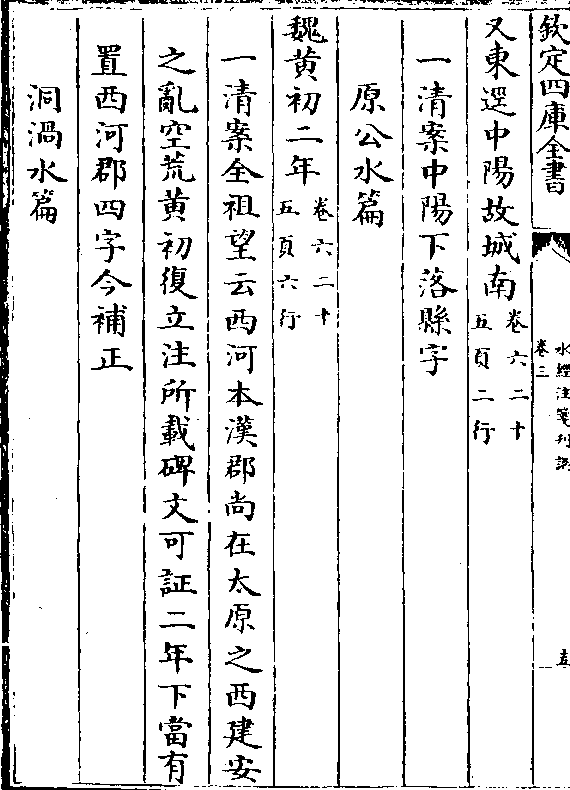 欽定四庫全書
水經注箋刋誤
卷三
又東逕中陽故城南卷六二十五頁二行
一清案中陽下落縣字
原公水篇
魏黃初二年卷六二十五頁六行
一清案全祖望云西河本漢郡尚在太原之西建安
之亂空荒黃初復立注所載碑文可証二年下當有
置西河郡四字今補正
洞渦水篇